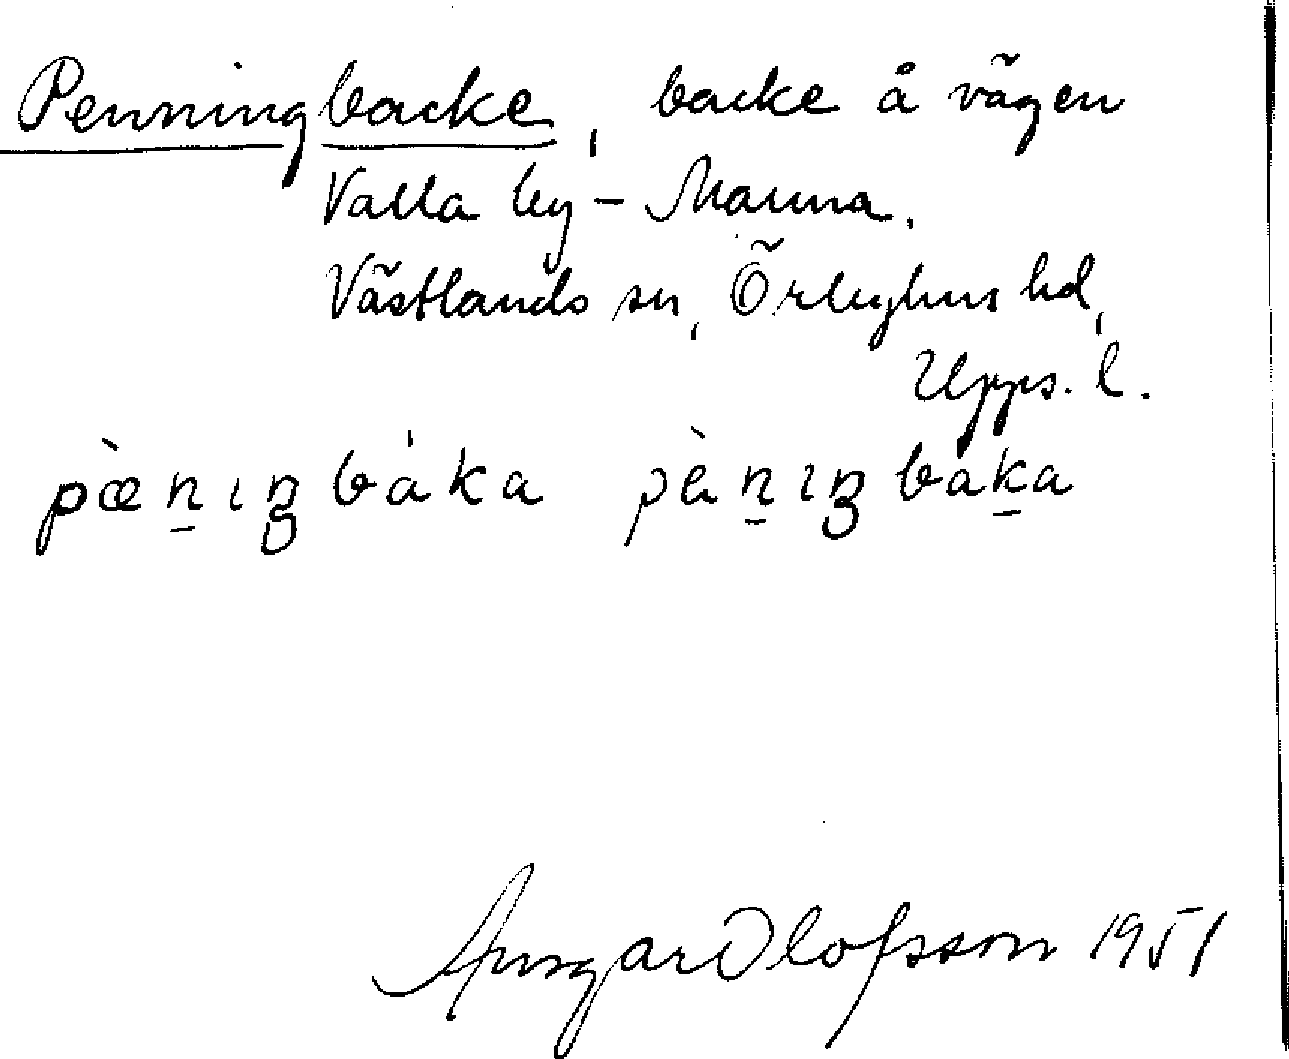 Penningbacke, backe å vägen
Valla by - Marma.
Västlands sn, Örbyhus hd,
Upps. l.
pæ̀n̲ıŋbáka pæ̀n̲ıŋbak̲a
Ansgar Olofsson 1951